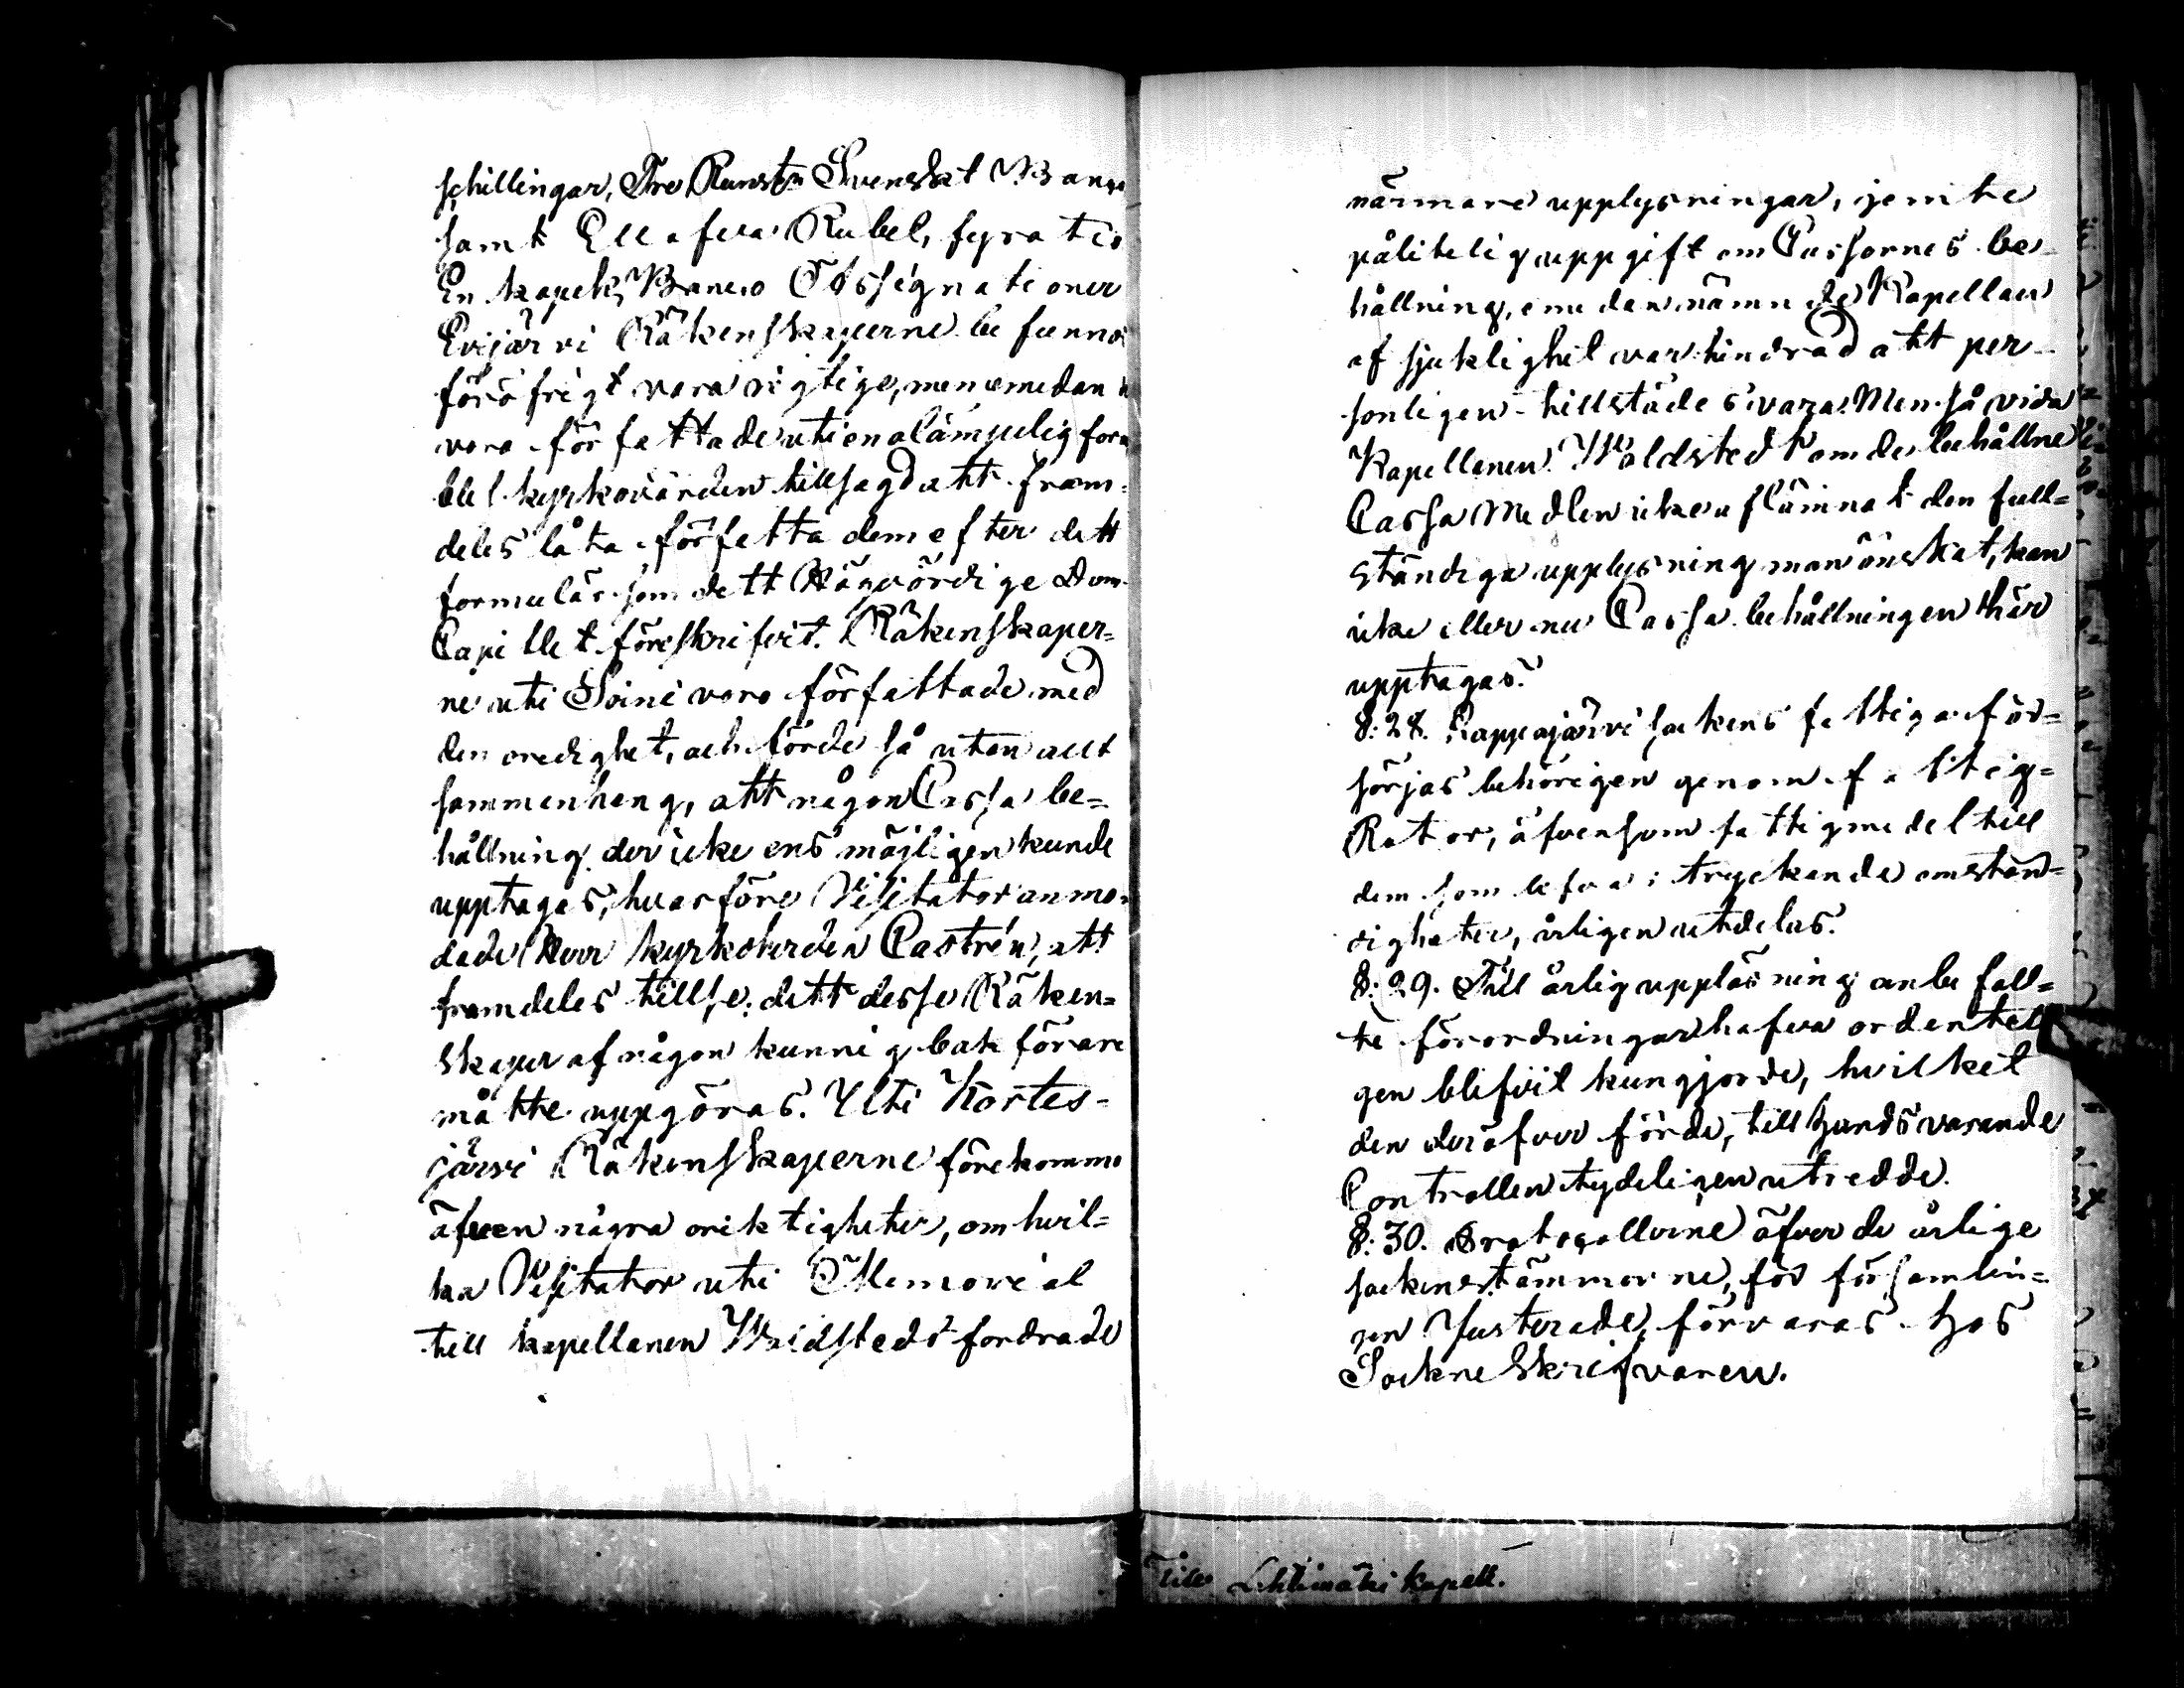 schillingar, Tre Runst. Svenskt Banco
samt Ellafva Rubel, fyratio
En kopek, Banco Assignationer
Evijärvi Räkenskaperne befunnos
föröfrigt vara rigtige, men emedan
voro författade uti en olämpelig form
blef kyrkovärden tillsagd att fram-
deles låta författa dem efter dett
formulär som dett Högvördige Dom-
Capitlet föreskrifvit. Räkenskaper=
ne uti Soini voro författade med
den oredighet, och förde så utan allt
sammenhang, att någon Cassa be=
hållning der icke ens möjligen kunde
upptagas, hvarföre Visitator anmo-
dade Herr kyrkoherden Castrén, att
framdeles tillse, dett desse Räken=
skaper af någon kunnig bokförare
måtte uppgöras. Uti Kortes-
järvi Räkenskaperne förekommo
äfven några oriktigheter, om hvil=
ka Visitator uti Memorial
till kapellanen Waldstedt fordrade
närmare upplysningar, jemte
pålitelig uppgift om Cassornes be-
hållning, emedan nämnde Kapellan
af sjuklighet var hindrad att per-
sonligen tillstädes vara. Men så vida
Kapellanen Waldstedt om de behållne
Cassa Medlen icke aflämnat den full=
ständiga upplysning man önskat, kan
icke eller nu Cassa behållningen här
upptagas.
§: 28. Lappajärvi sockens fattiga för=
sörjas behörigen genom fattig=
Rotor, äfvensom fattigmedel till
dem som lefva i tryckande omstän=
digheter, årligen utdelas.
§: 29. Till årlig uppläsning anbefall=
te förordningar hafva ordenteli
gen blifvit kungjorde, hvilket
den deröfver förde, till hands varande
Controllen tydeligen utredde.
§: 30. Protocollerne öfver de årlige
sockenstämmorne, för församlin=
gen Justerade, förvaras hos
Sockneskrifvaren.
Till Lehtimäki Kapell.